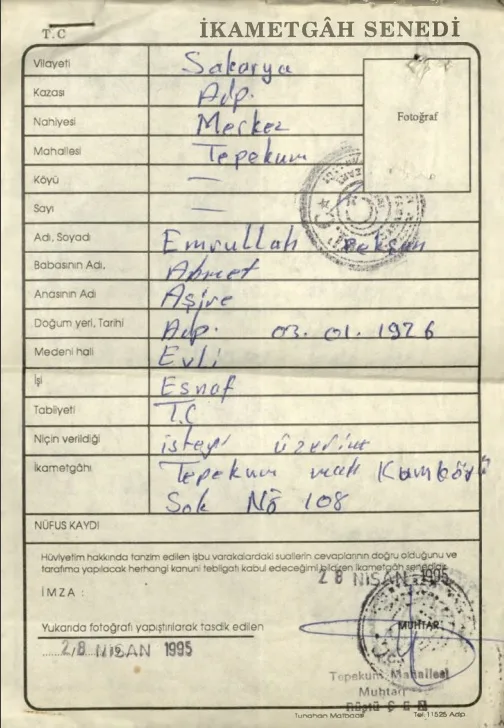 T.C İKAMETGÂH SENEDİ
Vilayeti Sakarya
Kazası Adp.
Nahiyesi Merkez
Fotoğraf
Mahallesi Tepekum
Köyü —
Sayı —
Adı, Soyadı Emrullah
Babasının Adı, Ahmet
Anasının Adı Aşire
Doğum yeri, Tarihi Adp. 03.01.1926
Medeni hali Evli
İşi Esnaf
Tabiiyeti T.C
Niçin verildiği isteği üzerine
İkametgâhı Tepekum mah
Sok No 108
NÜFUS KAYDI
Hüviyetim hakkında tanzim edilen işbu varakalardaki suallerin cevaplarının doğru olduğunu ve
tarafıma yapılacak herhangi kanuni tebligatı kabul edeceğimi bildiren ikametgâh senedidir.
28 NİSAN 1995
İMZA :
MUHTAR
Yukarıda fotoğrafı yapıştırılarak tasdik edilen
28 NİSAN 1995
Tepekum Mahallesi
Muhtarı
Tunahan Matbaası Tel: 11525 Adp